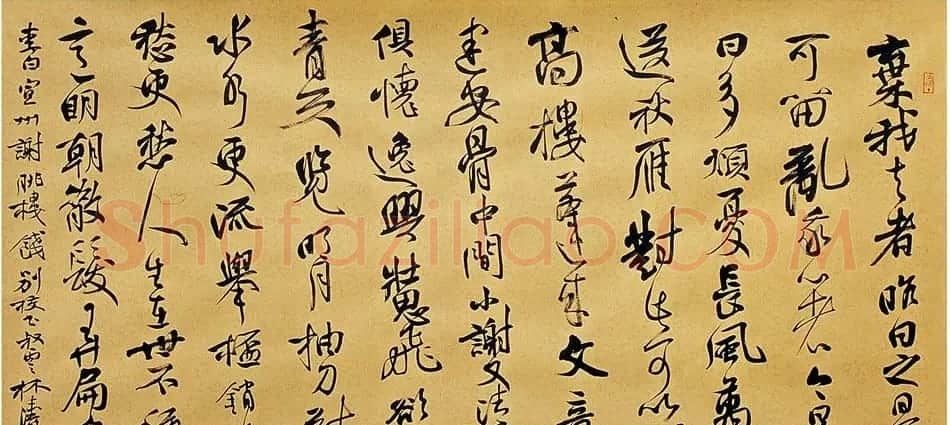 棄我去者昨日之日
可留亂我心者今日
日多煩憂長風萬
送秋雁對此可以
高樓蓬萊文章
建安骨中間小謝又清
俱懷逸興壯思飛欲
青天覽明月抽刀
水水更流舉杯銷
愁更愁人生在世不
意明朝散髮弄扁
李白宣州謝朓樓餞別校書叔雲林濤
Shufaziliao.COM